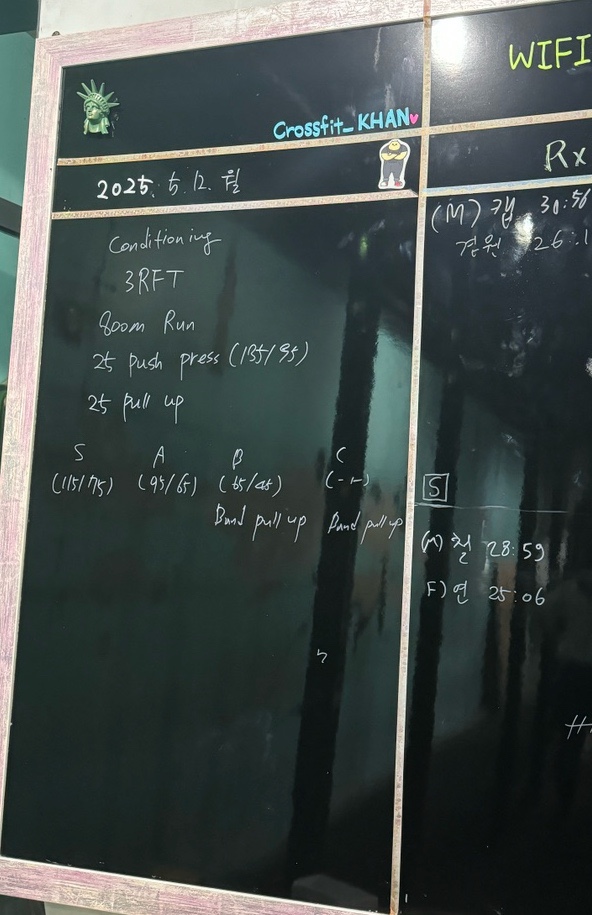 Crossfit_KHAN
2025. 5. 12. 월
Conditioning
3RFT
800m Run
25 push press (135/95)
25 pull up
S A B C
(115/75) (95/65) (65/45) (-/-)
Band pull up Band pull up
WIFI
Rx
(M) 캡 30:56
경원 26:1
S
(M) 철 28:59
F) 연 25:06